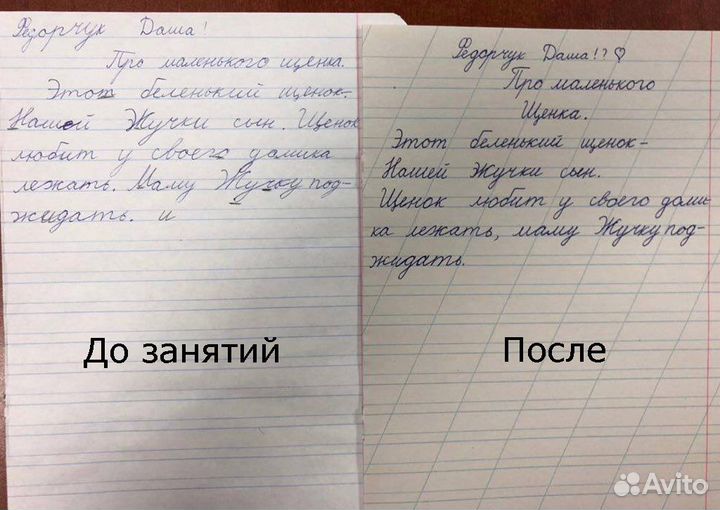 Федорчук Даша!
Про маленького щенка.
Этот беленький щенок-
Нашей Жучки сын. Щенок
любит у своего домика
лежать. Маму Жучку под-
жидать. и
До занятий
Федорчук Даша!?♡
Про маленького
Щенка.
Этот беленький щенок-
Нашей Жучки сын.
Щенок любит у своего доми-
ка лежать, маму Жучку под-
жидать.
После
Avito